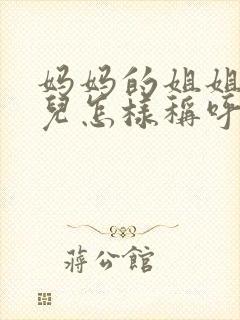 妈妈的姐姐
兒怎樣稱呼
蔣公館